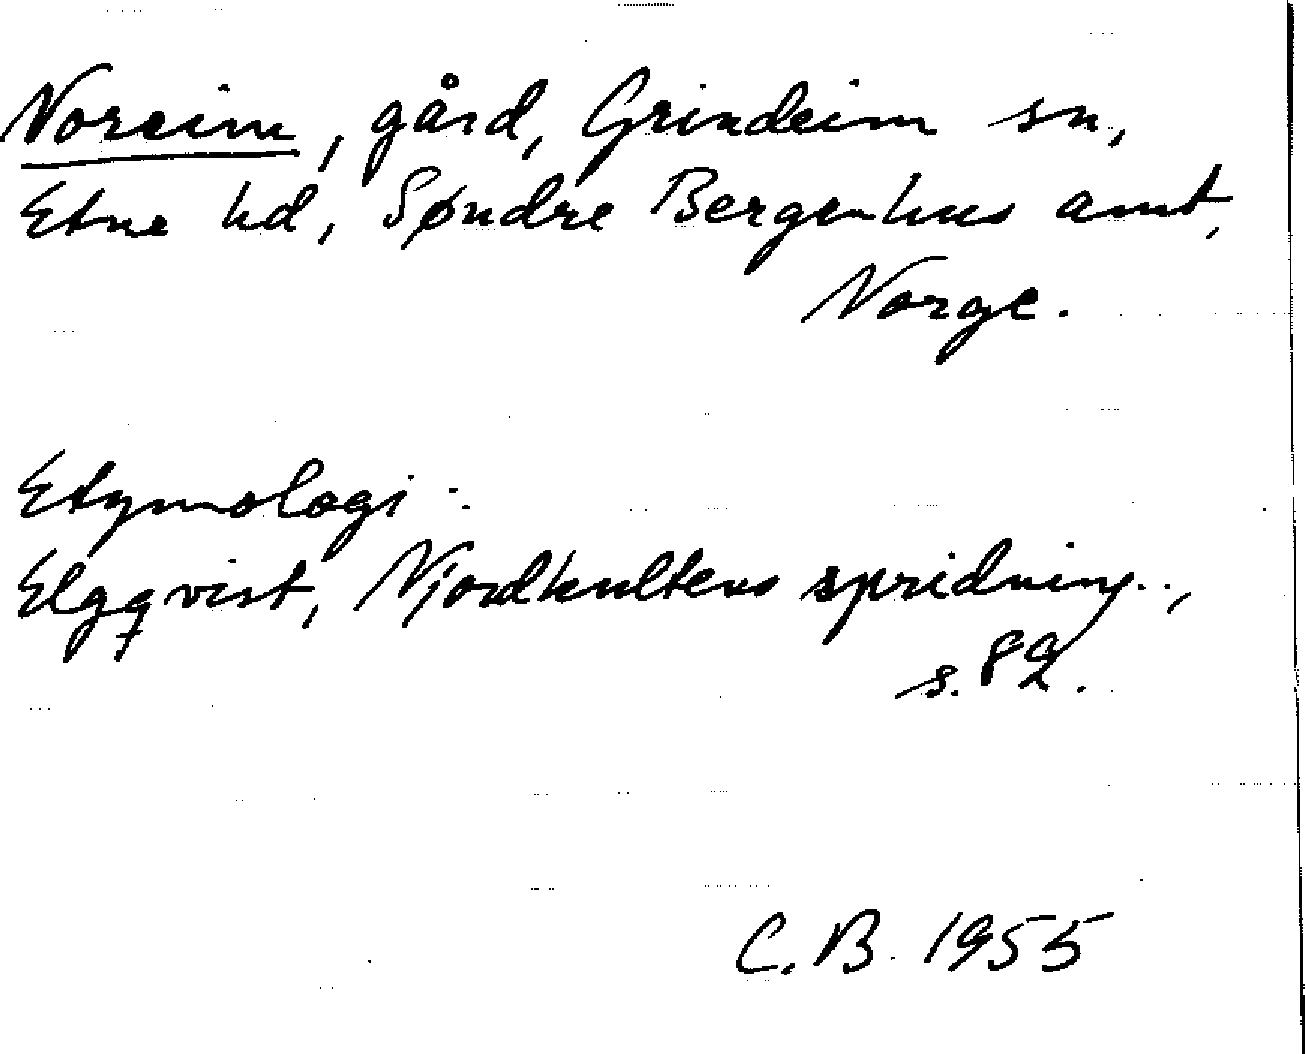 Noreim, gård, Grindeim sn,
Etne hd, Søndre Bergenhus amt,
Norge.
Etymologi:
Elgqvist, Njordkultens spridning..,
s. 82.
C. B. 1955